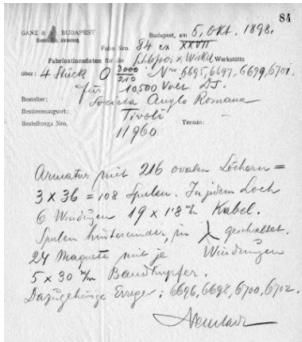 84
GANZ & BUDAPEST
Budapest, am 5. Okt. 1898.
Fabr. Nro. 84 ex XXVII
Fabrikationsdaten für die Werkstätte
über: 4 Stück O 3000/210 Nro 6695, 6697, 6699, 6701.
für 10500 Volt
Besteller: Societa Anglo Romana
Bestimmungsort: Tivoli
Bestellungs Nro. 11960 Termin:
Armatur mit 216 ovalen Löchern =
3 X 36 = 108 Spulen. In jedem Loch
6 Windungen 19 X 1·8 m/m Kabel.
Spulen hintereinander, in ⅄ geschaltet.
24 Magnete mit je Windungen
5 X 30 m/m Bandkupfer.
Dazugehörige Erreger: 6696, 6698, 6700, 6702.